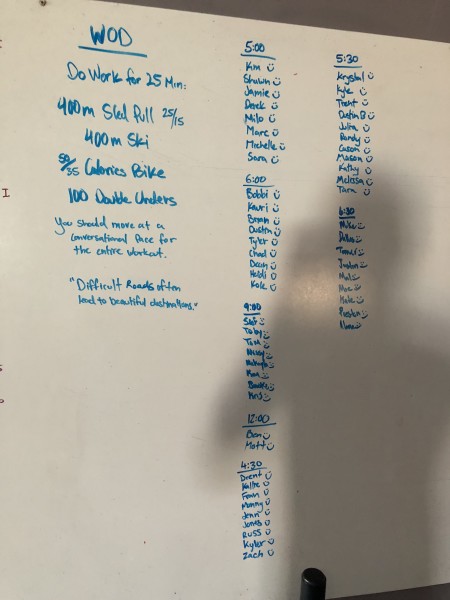 WOD
Do Work for 25 Min:
400m Sled Pull 25/15
400m Ski
50/35 Calories Bike
100 Double Unders
You should move at a
conversational pace for
the entire workout.
"Difficult Roads often
lead to beautiful destinations."
5:00
Kim
Shawn
Jamie
Derek
Milo
Marc
Michelle
Sara
6:00
Bobbi
Kauri
Bryan
Dustin
Tyler
Chad
Dean
Heidi
Kole
9:00
Toby
Tom
Kris
12:00
Ben
Matt
4:30
Brent
Kallie
Fawn
Manny
Jenni
Jones
Russ
Kyler
Zach
5:30
Krystal
Kyle
Trent
Dustin B
Julia
Randy
Carson
Mason
Kathy
Melissa
Tara
6:30
Mike
Preston